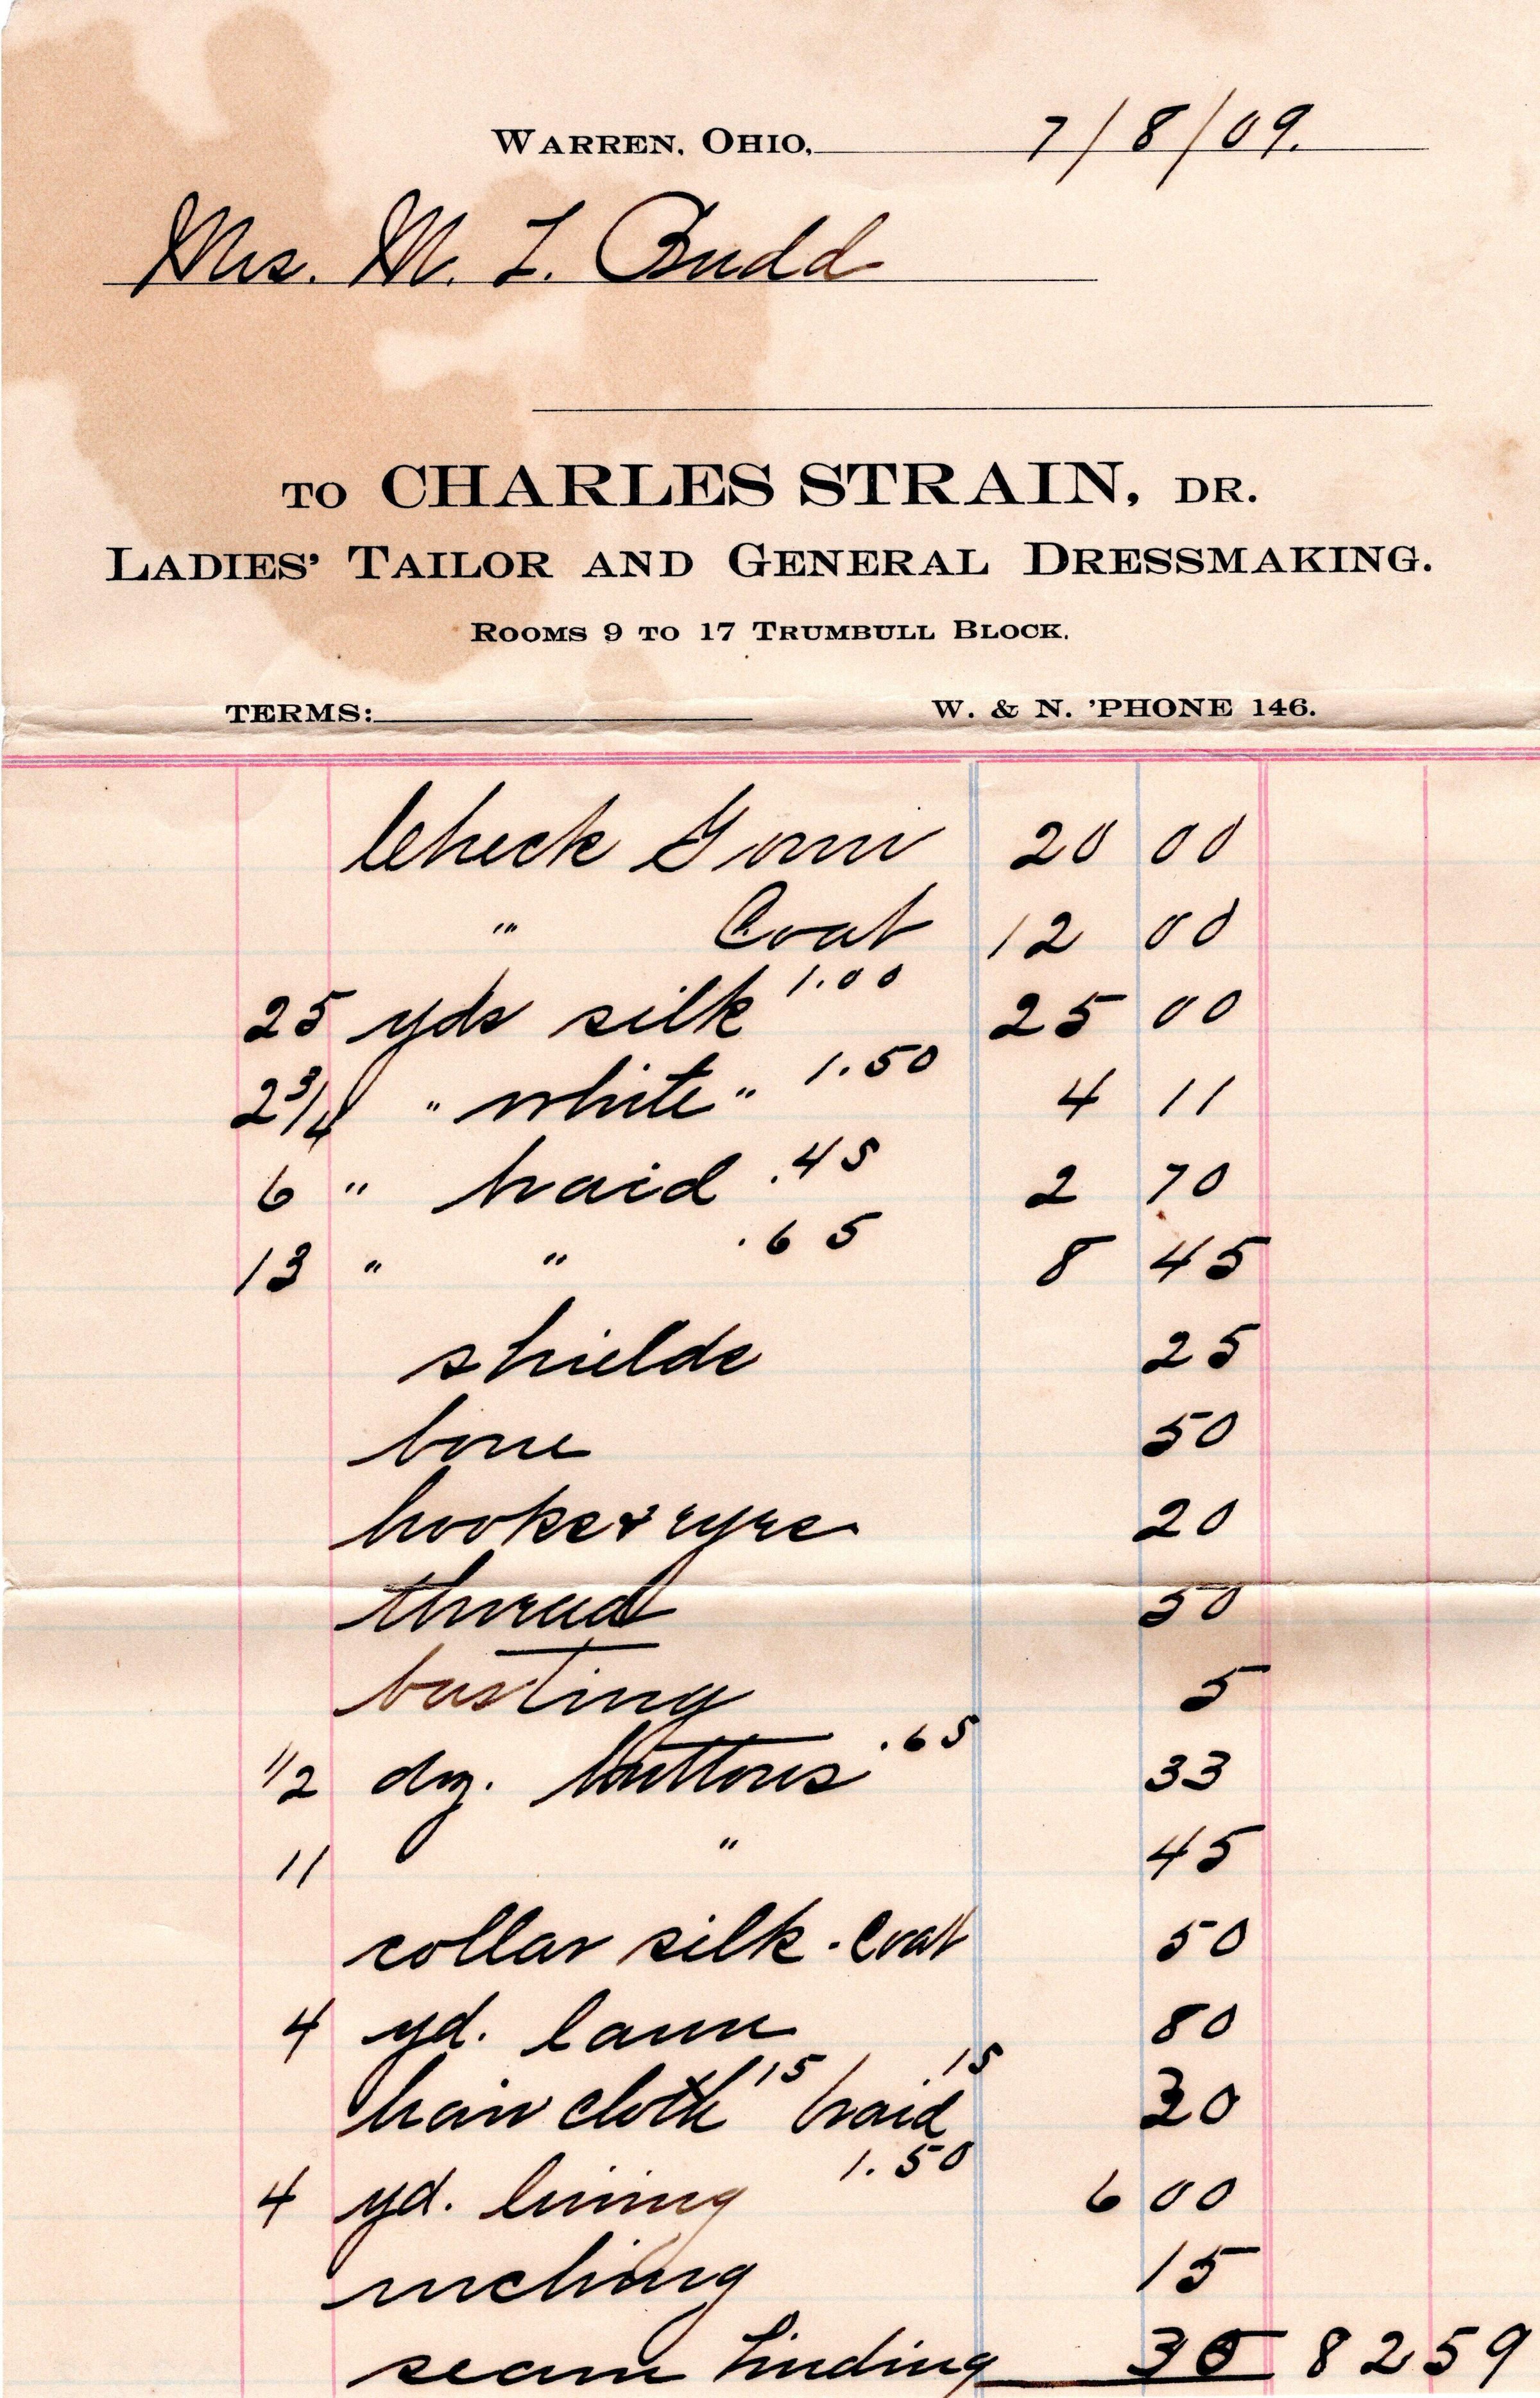 WARREN, OHIO, 7/8/09.
Mrs. M. L. Budd
TO CHARLES STRAIN, DR.
LADIES' TAILOR AND GENERAL DRESSMAKING.
ROOMS 9 TO 17 TRUMBULL BLOCK.
TERMS: W. & N. 'PHONE 146.
Check Gown 20 00
" Coat 12 00
25 yds silk 1.00 25 00
2 3/4 " white " 1.50 4 11
6 " braid .45 2 70
13 " " .65 8 45
shields 25
bone 50
hooks & eyes 20
thread 50
basting 5
1/2 dz. buttons .65 33
11 " 45
collar silk - Coat 50
4 yd. lawn 80
hair cloth 15 braid 15 30
4 yd. lining 1.50 6 00
ruching 15
seam binding 30 82 59